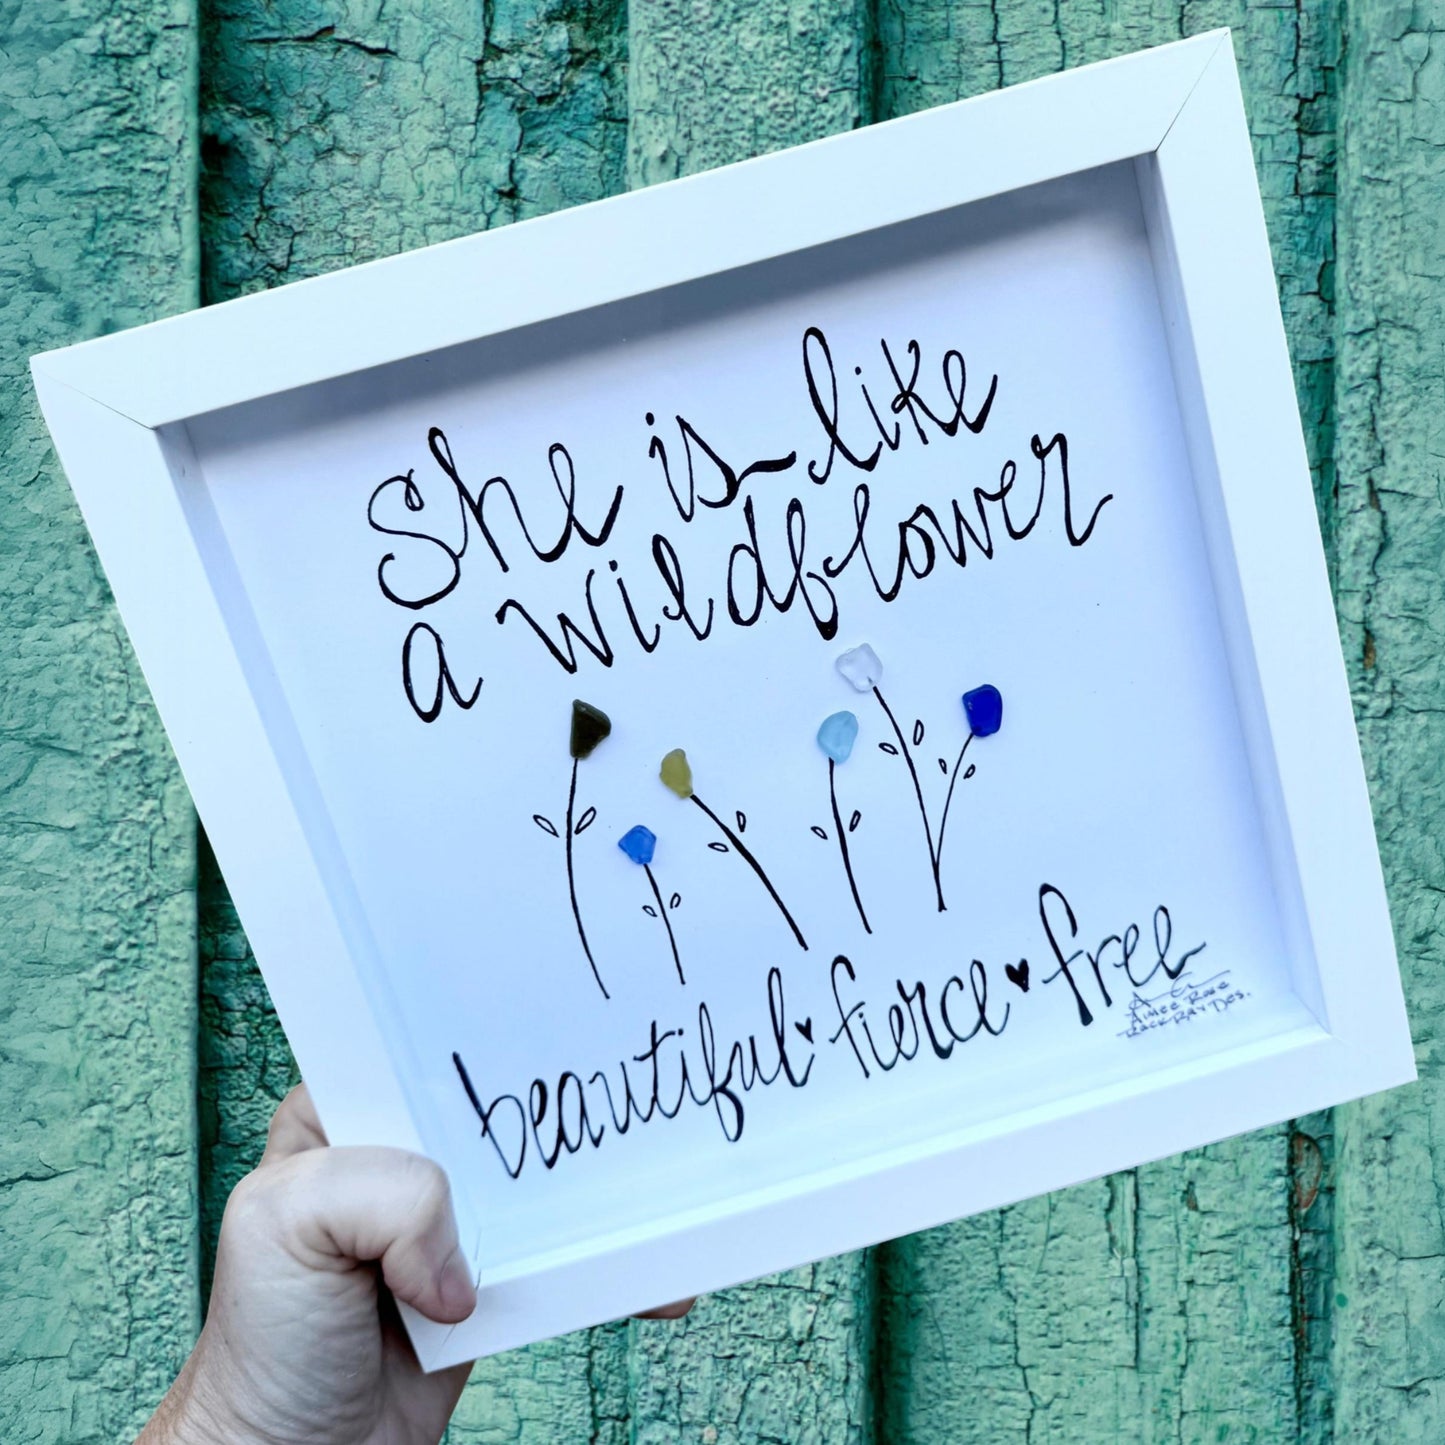 She is like
a wildflower
beautiful · fierce ♥ free
Aimee Rose